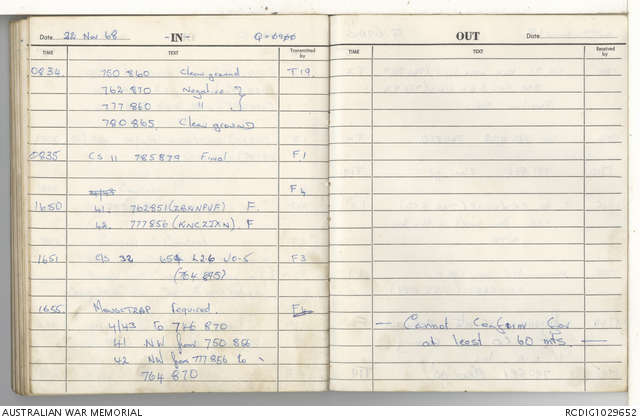 Date 22 Nov 68 -IN-
TIME TEXT Transmitted by
0834 750 860 Clear ground T19
762 870 Negative }
777 860 " }
780 865. Clear ground
0835 CS 11 785879 Final F1
F4
1650 41. 762851 (ZBNNPVF) F.
42. 777856 (KNCZIXN) F
1651 C/s 32 L2.6 U0.5 F3
(764 895)
1655 MOUSETRAP required. F4
4/43 to 776 870
41 NW from 750 856
42 NW from 777856 to
764 870
OUT Date
TIME TEXT Received by
— Cannot Conform for
at least 60 mts. —
AUSTRALIAN WAR MEMORIAL RCDIG1029652